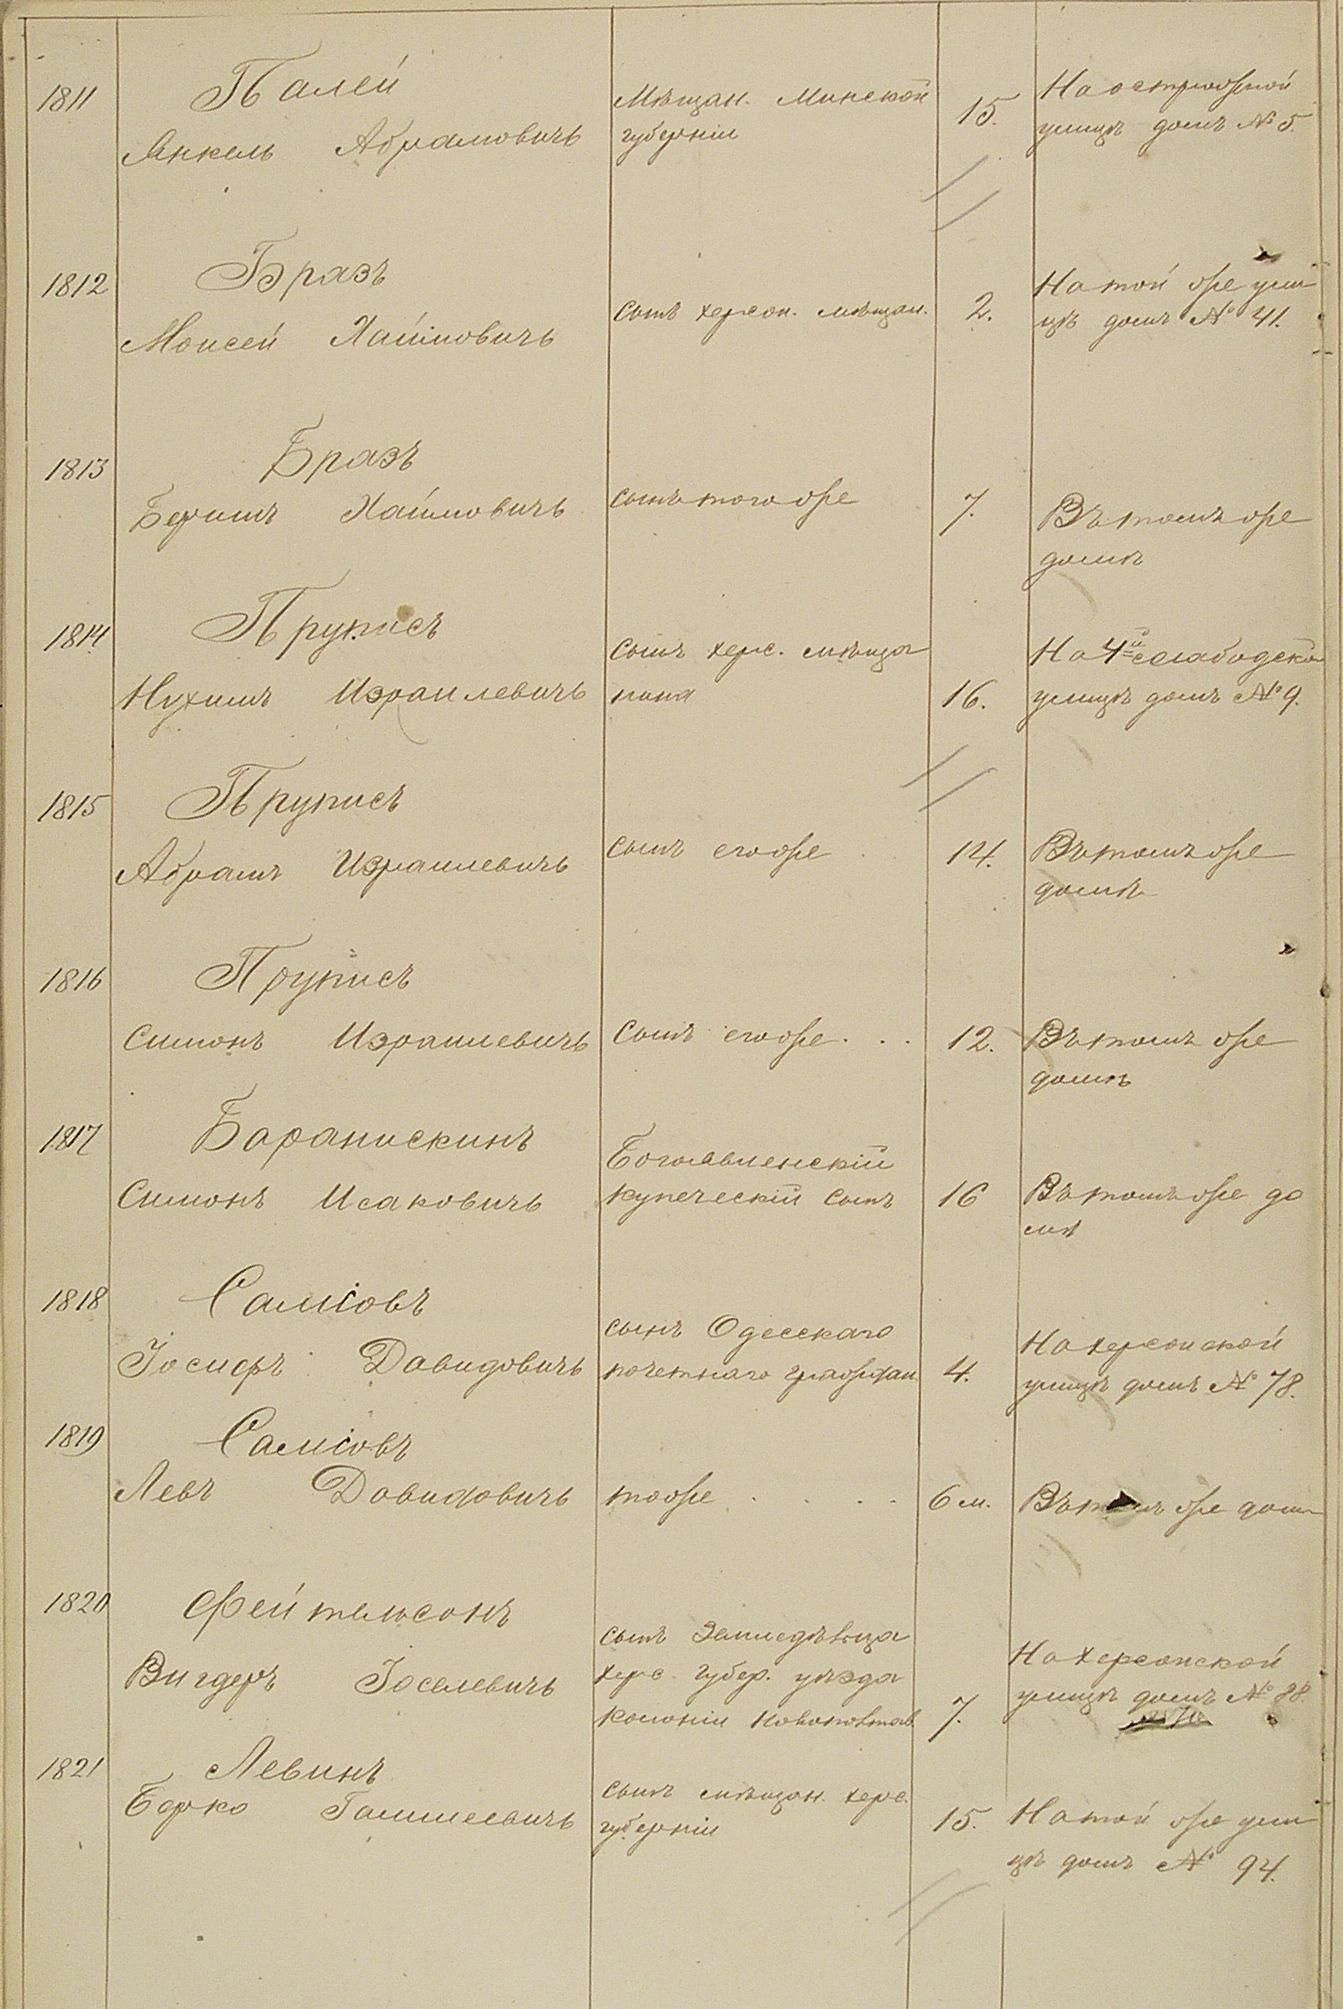 1811
Палей
Янкель Абрамовичъ
Мѣщан. Минской
губерніи
15.
На острожной
улицѣ домъ № 5.
1812
Бразъ
Моисей Хаймовичъ
сынъ херсон. мѣщан.
2.
На той же ули
цѣ домъ № 41.
1813
Бразъ
Беришъ Хаймовичъ
сынъ того же
7.
Въ томъ же
домѣ
1814
Пруписъ
Нухимъ Израилевичъ
сынъ херс. мѣща
нина
16.
На 4й слободской
улицѣ домъ № 9.
1815
Пруписъ
Абрамъ Израилевичъ
сынъ его же
14.
Въ томъ же
домѣ
1816
Пруписъ
Симонъ Израилевичъ
сынъ его же . . .
12.
Въ томъ же
домѣ
1817
Баранискинъ
Симонъ Исаковичъ
Богоявленскій
купеческій сынъ
16
Въ томъ же до
мѣ
1818
Саліовъ
Іосифъ Давидовичъ
сынъ Одесскаго
почетнаго граждан
4.
На херсонской
улицѣ домъ № 78.
1819
Саліовъ
Левъ Давидовичъ
тоже . . . .
6 м.
Въ томъ же дом
1820
Фейтельсонъ
Вигдеръ Іоселевичъ
сынъ Земледѣльца
херс. губер. уѣзда
колоніи Новополтав.
7.
На херсонской
улицѣ домъ № 88.
1821
Левинъ
Берко Гамшеевичъ
сынъ мѣщан. херс.
губерніи
15.
На той же ули
цѣ домъ № 94.